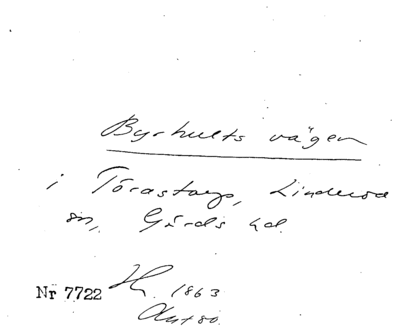 Byrhults vägen
i Törastorp, Linderöd
sn, Gärds hd.
Nr 7722 H. 1863